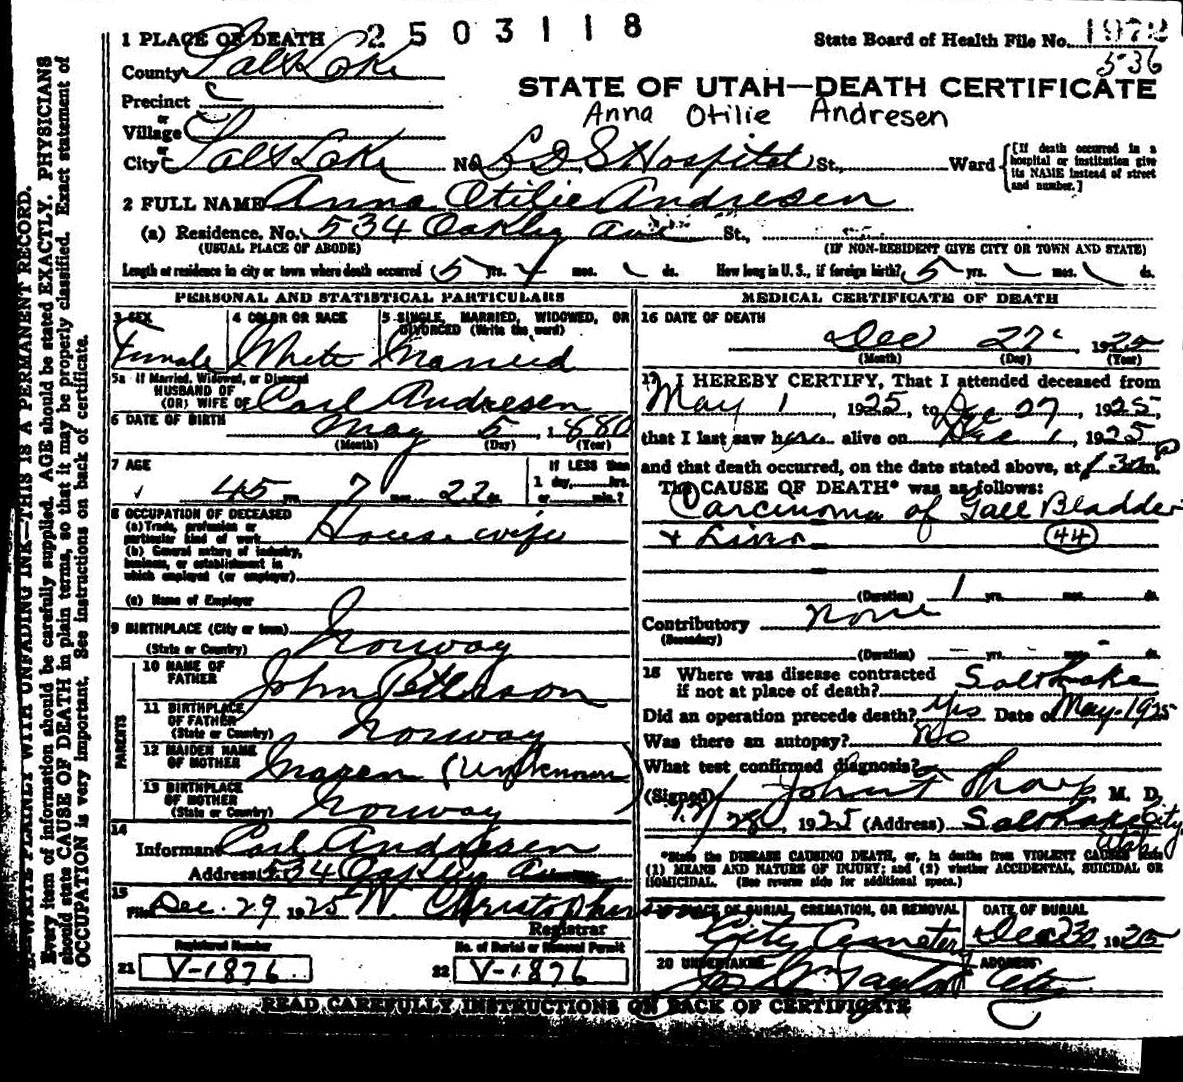 2503118
1 PLACE OF DEATH
State Board of Health File No. 1972
536
County Salt Lake
STATE OF UTAH—DEATH CERTIFICATE
Precinct
Anna Otilie Andresen
or
Village
or
City Salt Lake No. L D S Hospital St., Ward
[If death occurred in a hospital or institution give its NAME instead of street and number.]
2 FULL NAME Anna Otilie Andresen
(a) Residence. No. 534 Oakley Ave St.,
(USUAL PLACE OF ABODE) (IF NON-RESIDENT GIVE CITY OR TOWN AND STATE)
Length of residence in city or town where death occurred 5 yrs. mos. ds. How long in U. S., if foreign birth? 5 yrs. mos. ds.
PERSONAL AND STATISTICAL PARTICULARS
3 SEX 4 COLOR OR RACE 5 SINGLE, MARRIED, WIDOWED, OR
DIVORCED (Write the word)
Female White Married
5a If Married, Widowed, or Divorced
HUSBAND OF
(OR) WIFE OF Carl Andresen
6 DATE OF BIRTH May 5, 1880
(Month) (Day) (Year)
7 AGE If LESS than
1 day, hrs.
45 yrs. 7 mos. 22 ds. or min.?
8 OCCUPATION OF DECEASED
(a) Trade, profession or
particular kind of work House wife
(b) General nature of industry,
business, or establishment in
which employed (or employer)
(c) Name of Employer
9 BIRTHPLACE (City or town)
(State or Country) Norway
PARENTS
10 NAME OF
FATHER John Petterson
11 BIRTHPLACE
OF FATHER
(State or Country) Norway
12 MAIDEN NAME
OF MOTHER Maren (Unknown)
13 BIRTHPLACE
OF MOTHER
(State or Country) Norway
14
Informant Carl Andresen
Address 534 Oakley Ave
15
Filed Dec. 29 1925 W. Christopherson
Registrar
Registered Number No. of Burial or Removal Permit
21 V-1876 22 V-1876
MEDICAL CERTIFICATE OF DEATH
16 DATE OF DEATH
Dec 27, 1925
(Month) (Day) (Year)
17 I HEREBY CERTIFY, That I attended deceased from
May 1, 1925, to Dec 27, 1925,
that I last saw her alive on Dec 1, 1925
and that death occurred, on the date stated above, at 30 m.
The CAUSE OF DEATH* was as follows:
Carcinoma of Gall Bladder
+ Liver 44
(Duration) 1 yrs. mos. ds.
Contributory None
(Secondary)
(Duration) yrs. mos. ds.
18 Where was disease contracted
if not at place of death? Salt Lake
Did an operation precede death? Yes Date of May-1925
Was there an autopsy? No
What test confirmed diagnosis?
(Signed) M. D.
28, 1925 (Address) Salt Lake City
Utah
*State the DISEASE CAUSING DEATH, or, in deaths from VIOLENT CAUSES state
(1) MEANS AND NATURE OF INJURY; and (2) whether ACCIDENTAL, SUICIDAL OR
HOMICIDAL. (See reverse side for additional space.)
19 PLACE OF BURIAL, CREMATION, OR REMOVAL DATE OF BURIAL
City Cemetery Dec 30, 1925
20 UNDERTAKER ADDRESS
Taylor City
READ CAREFULLY INSTRUCTIONS ON BACK OF CERTIFICATE
WRITE PLAINLY WITH UNFADING INK—THIS IS A PERMANENT RECORD.
Every item of information should be carefully supplied. AGE should be stated EXACTLY. PHYSICIANS
should state CAUSE OF DEATH in plain terms, so that it may be properly classified. Exact statement of
OCCUPATION is very important. See instructions on back of certificate.